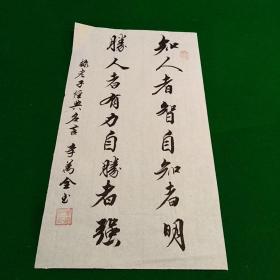 知人者智自知者明
勝人者有力自勝者强
錄老子經典名言 李萬全书